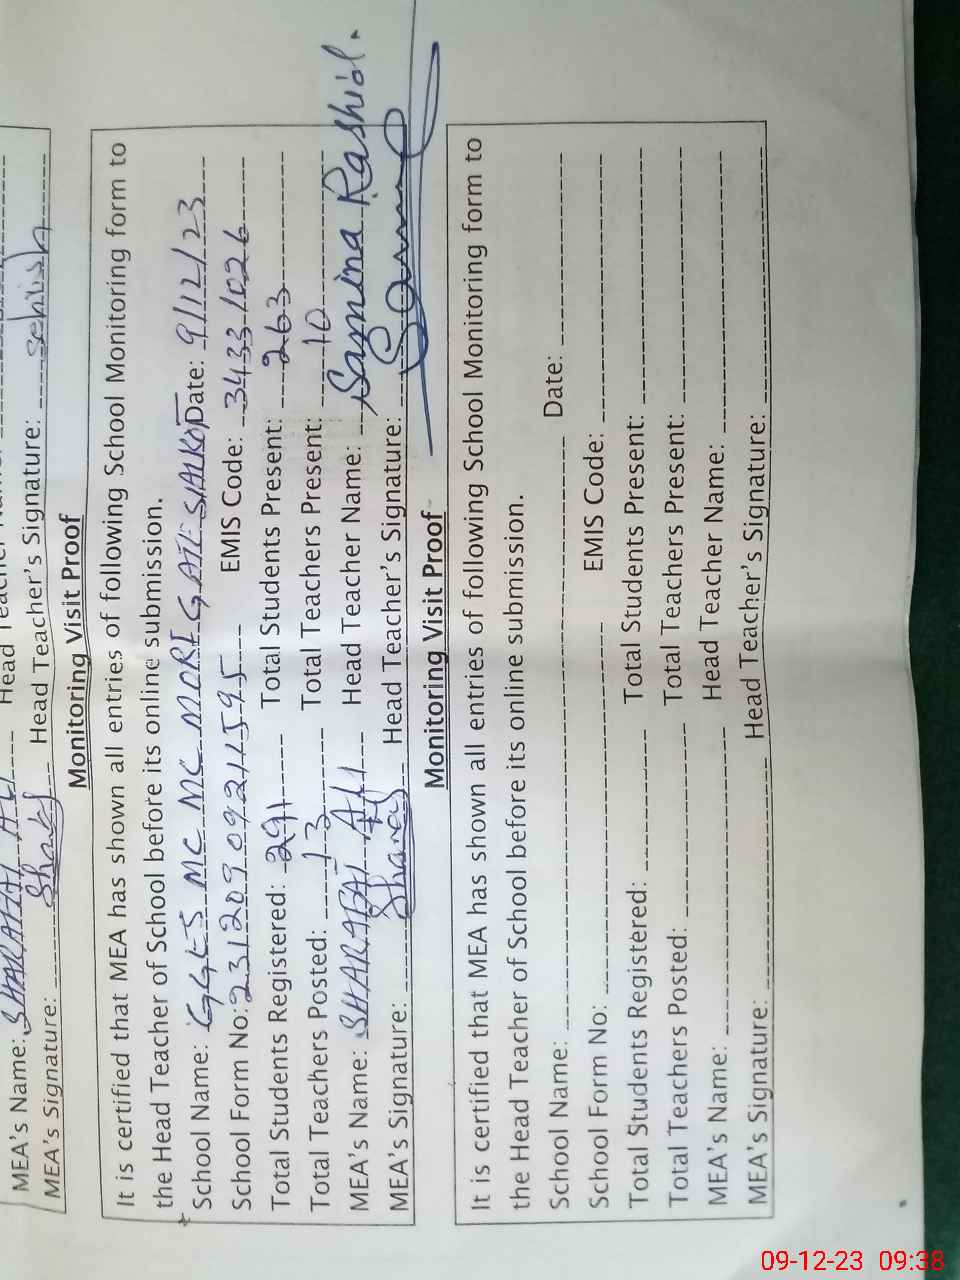 MEA's Name: SHARAFAT ALI Head Teacher
MEA's Signature: Head Teacher's Signature:
Monitoring Visit Proof
It is certified that MEA has shown all entries of following School Monitoring form to
the Head Teacher of School before its online submission.
School Name: GGES MC MC MORE GATE SIALKOT Date: 9/12/23
School Form No: 23120909211595 EMIS Code: 34331026
Total Students Registered: 291 Total Students Present: 263
Total Teachers Posted: 13 Total Teachers Present: 10
MEA's Name: SHARAFAT ALI Head Teacher Name: Samina Rashid.
MEA's Signature: Head Teacher's Signature:
Monitoring Visit Proof
It is certified that MEA has shown all entries of following School Monitoring form to
the Head Teacher of School before its online submission.
School Name: Date:
School Form No: EMIS Code:
Total Students Registered: Total Students Present:
Total Teachers Posted: Total Teachers Present:
MEA's Name: Head Teacher Name:
MEA's Signature: Head Teacher's Signature:
09-12-23 09:38